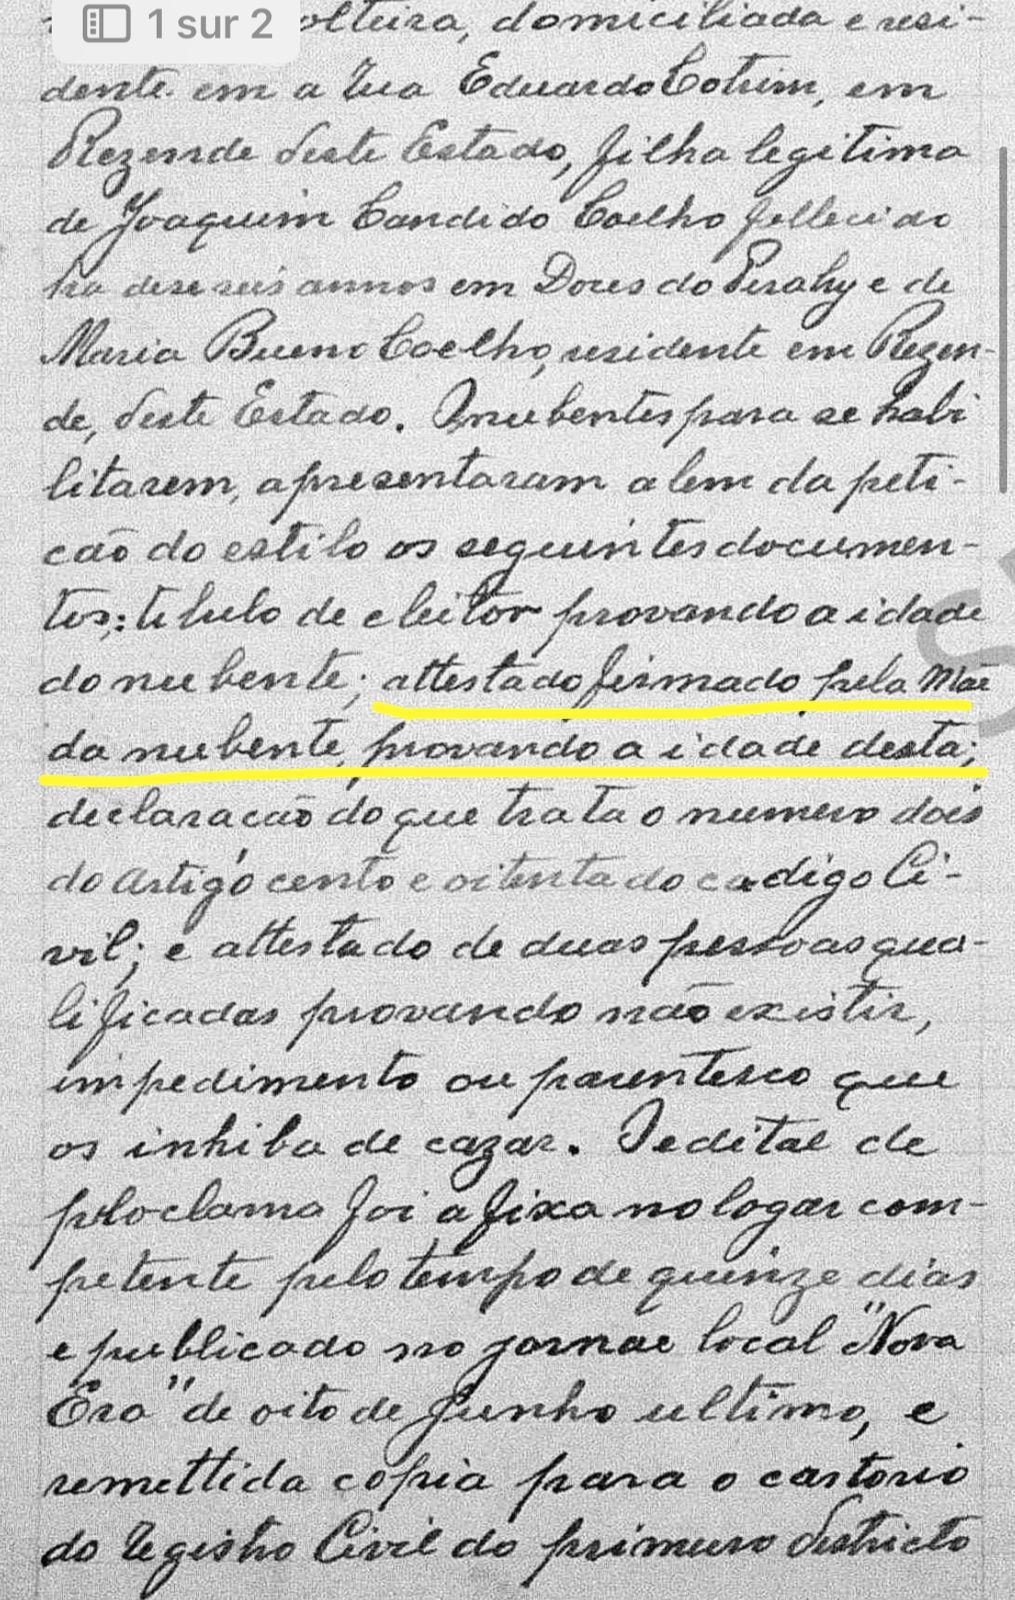 1 sur 2
olteira, domiciliada e resi-
dente em a rua Eduardo Cotrim, em
Rezende deste Estado, filha legitima
de Joaquim Candido Coelho fallecido
ha deseseis annos em Dores do Pirahy e de
Maria Bueno Coelho, residente em Rezen-
de, deste Estado. Os nubentes para se habi
litarem, apresentaram alem da peti-
cão do estilo os seguintes documen-
tos: titulo de eleitor provando a idade
do nubente; attestado firmado pela Mãe
da nubente, provando a idade desta;
declaracão do que trata o numero dois
do artigo cento e oitenta do codigo Ci-
vil; e attestado de duas pessoas qua-
lificadas provando não existir,
impedimento ou parentesco que
os inhiba de cazar. O edital de
ploclama foi afixa no logar com-
petente pelo tempo de quinze dias
e publicado no jornal local "Nova
Era" de oito de Junho ultimo, e
remettida copia para o cartorio
do Registro Civil do primeiro districto